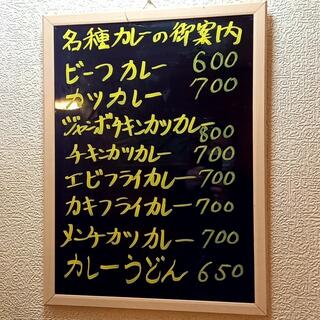 各種カレーの御案内
ビーフカレー 600
カツカレー 700
ジャンボチキンカツカレー 800
チキンカツカレー 700
エビフライカレー 700
カキフライカレー 700
メンチカツカレー 700
カレーうどん 650